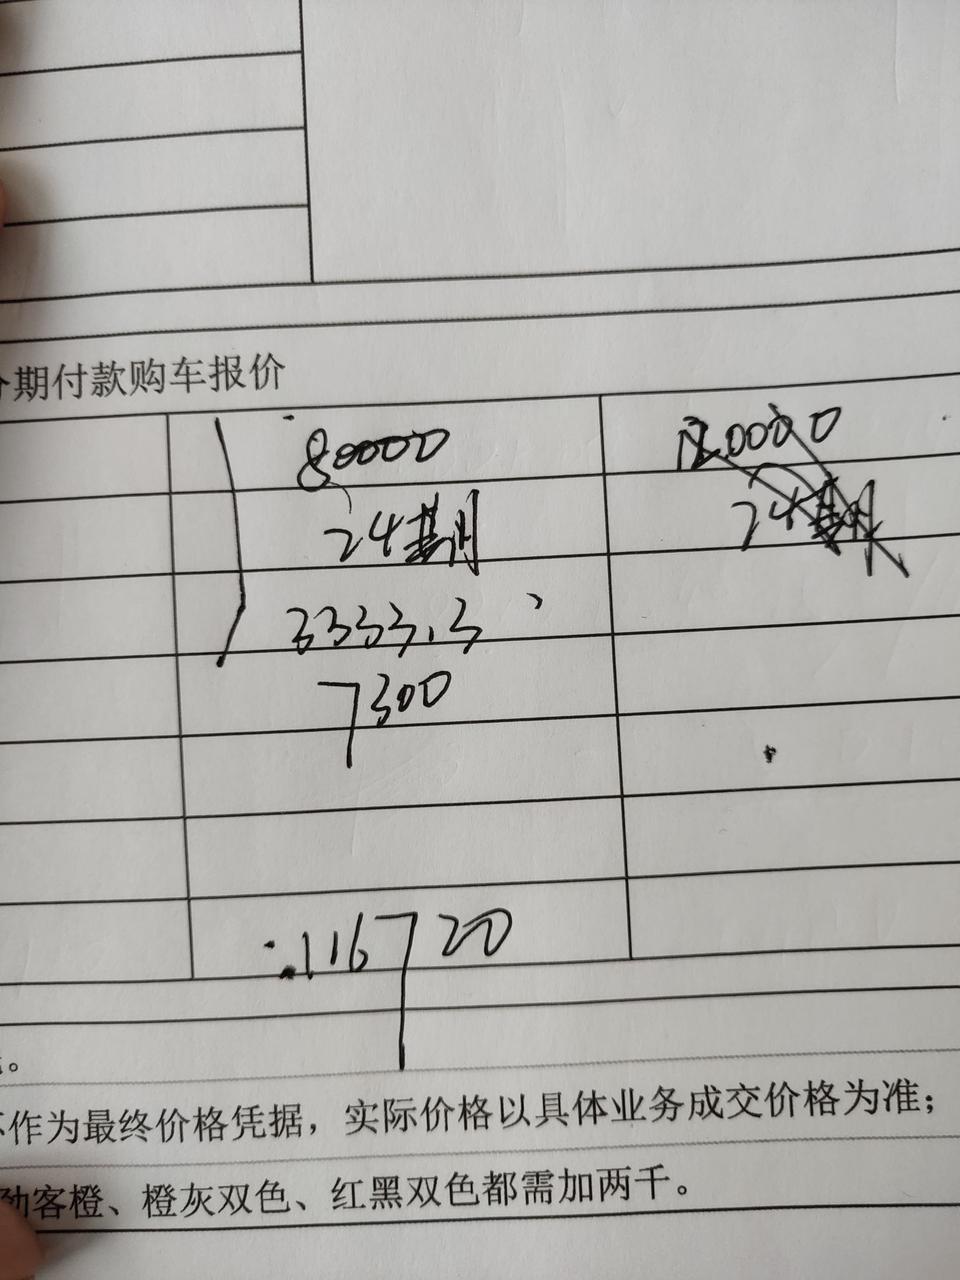 期付款购车报价
80000
24期
3333.3
7300
116720
24期
。
作为最终价格凭据，实际价格以具体业务成交价格为准；
客橙、橙灰双色、红黑双色都需加两千。